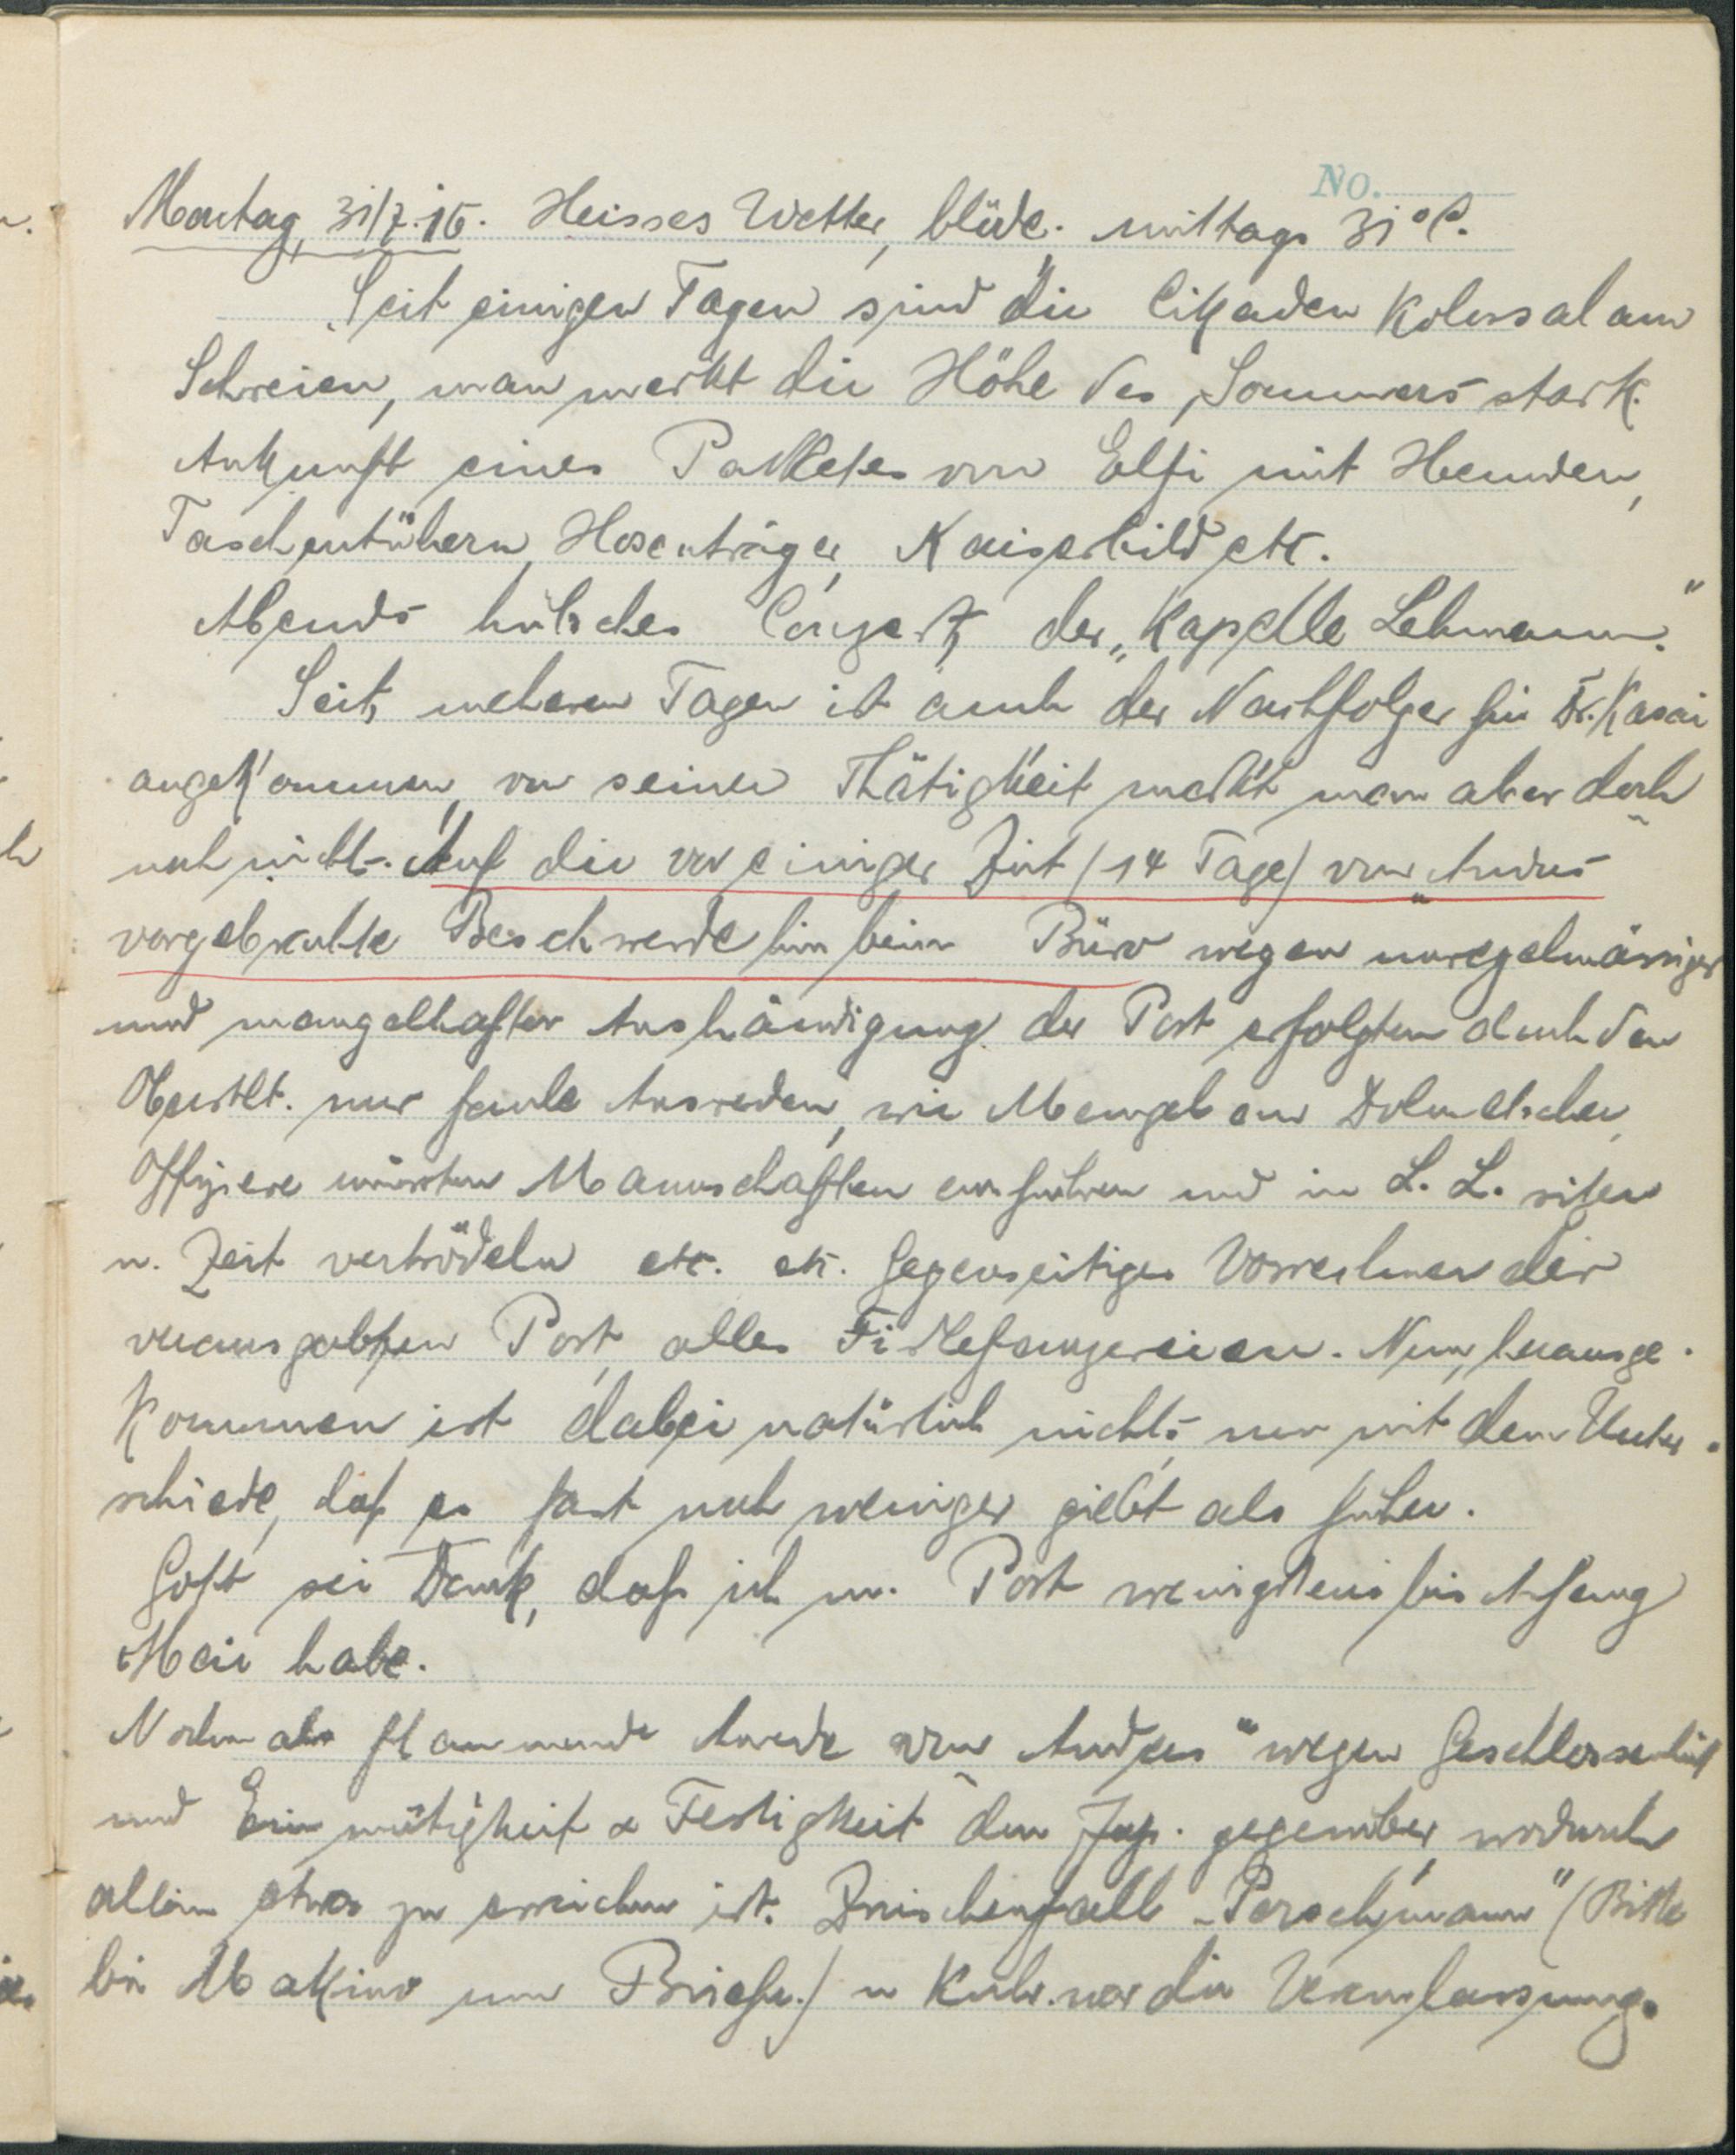 No.
Montag, 31/7.16. Heisses Wetter, blüde. mittags 31° C.
Seit einigen Tagen sind die Cikaden kolossal am
Schreien, man merkt die Höhe des Sommers stark.
Ankunft eines Palketes von Elfi mit Hemden,
Taschentühern, Hosenträger, Kaiserbild etc.
Abends hübsches Conzert der „Kapelle Lehmann."
Seit meheren Tagen ist auch der Nachfolger für Dr. Kasai
angekommen, von seiner Thätigkeit merkt man aber doch
noch nichts. Auf die vor einiger Zeit (14 Tage) von „Andres"
vorgebrachte Beschwerde hin beim Büro wegen unregelmässiger
und mangelhafter Aushändigung der Post erfolgten durch den
Oberstlt. nur faule Ausreden, wie Mangel an Dolmetscher,
Offiziere müssten Mannschaften und in L. L. sitzen
u. Zeit vertrödeln etc. etc. Gegenseitiges Vorrechnen der
verausgabten Post, alles Firlefanzereien. Nun, herausge-
kommen ist dabei natürlich nichts, nur mit dem Unter-
schiede, daß es fast noch weniger giebt als früher.
Gott sei Dank, daß ich m. Post wenigstens bis Anfang
Mai habe.
Nochmals flammende Anrede von „Andres" wegen Geschlossenheit
und Einmütigkeit & Festigkeit den Jap. gegenüber, wodurch
allein etwas zu erreichen ist. Zwischenfall „Perschmann" (Bitte
bei Makino um Briefe.) u Kuhr. war die Veranlassung.